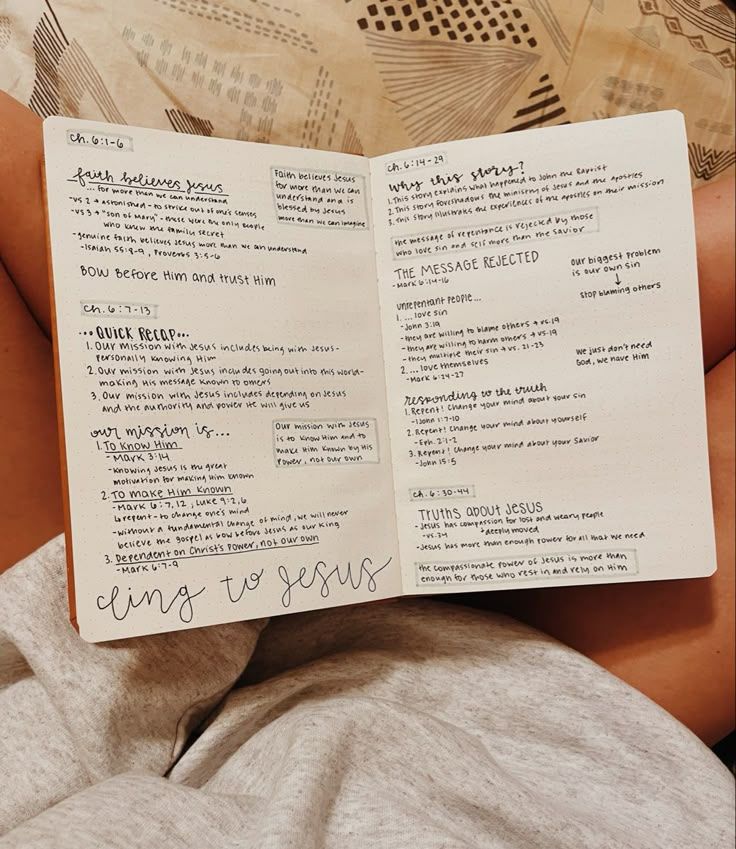 ch. 6:1-6
faith believes Jesus
... for more than we can understand
-vs 2 → astonished - to strike out of one's senses
-vs 3 → "son of Mary" - these were the only people
who knew the family secret
-genuine faith believes Jesus more than we can understand
-Isaiah 55:8-9, Proverbs 3:5-6
Bow before Him and trust Him
Faith believes Jesus
for more than we can
understand and is
blessed by Jesus
more than we can imagine
ch. 6:7-13
...QUICK RECAP...
1. Our mission with Jesus includes being with Jesus-
personally knowing Him
2. Our mission with Jesus includes going out into this world-
making His message known to others
3. Our mission with Jesus includes depending on Jesus
and the authority and power He will give us
our mission is...
1. To Know Him
-Mark 3:14
-Knowing Jesus is the great
motivation for making Him known
2. To make Him Known
-Mark 6:7,12, Luke 9:2,6
↳repent - to change one's mind
-without a fundamental change of mind, we will never
believe the gospel as bow before Jesus as our King
3. Dependent on Christ's Power, not our own
-Mark 6:7-9
Our mission with Jesus
is to Know Him and to
make Him Known by His
Power, not our own
cling to Jesus
ch. 6:14-29
why this story?
1. This story explains what happened to John the Baptist
2. This story foreshadows the ministry of Jesus and the apostles
3. This story illustrates the experiences of the apostles on their mission
the message of repentance is rejected by those
who love sin and self more than the Savior
THE MESSAGE REJECTED
-Mark 6:14-16
unrepentant people...
1. ... love sin
-John 3:19
-they are willing to blame others → vs. 19
-they are willing to harm others → vs. 19
-they multiple their sin → vs. 21-23
2. ... love themselves
-Mark 6:24-27
our biggest problem
is our own sin
↓
stop blaming others
we just don't need
God, we have Him
responding to the truth
1. Repent! Change your mind about your sin
-1John 1:7-10
2. Repent! Change your mind about yourself
-Eph. 2:1-2
3. Repent! Change your mind about your Savior
-John 15:5
ch. 6:30-44
Truths about Jesus
-Jesus has compassion for lost and weary people
-vs. 34 ↳deeply moved
-Jesus has more than enough power for all that we need
the compassionate power of Jesus is more than
enough for those who rest in and rely on Him